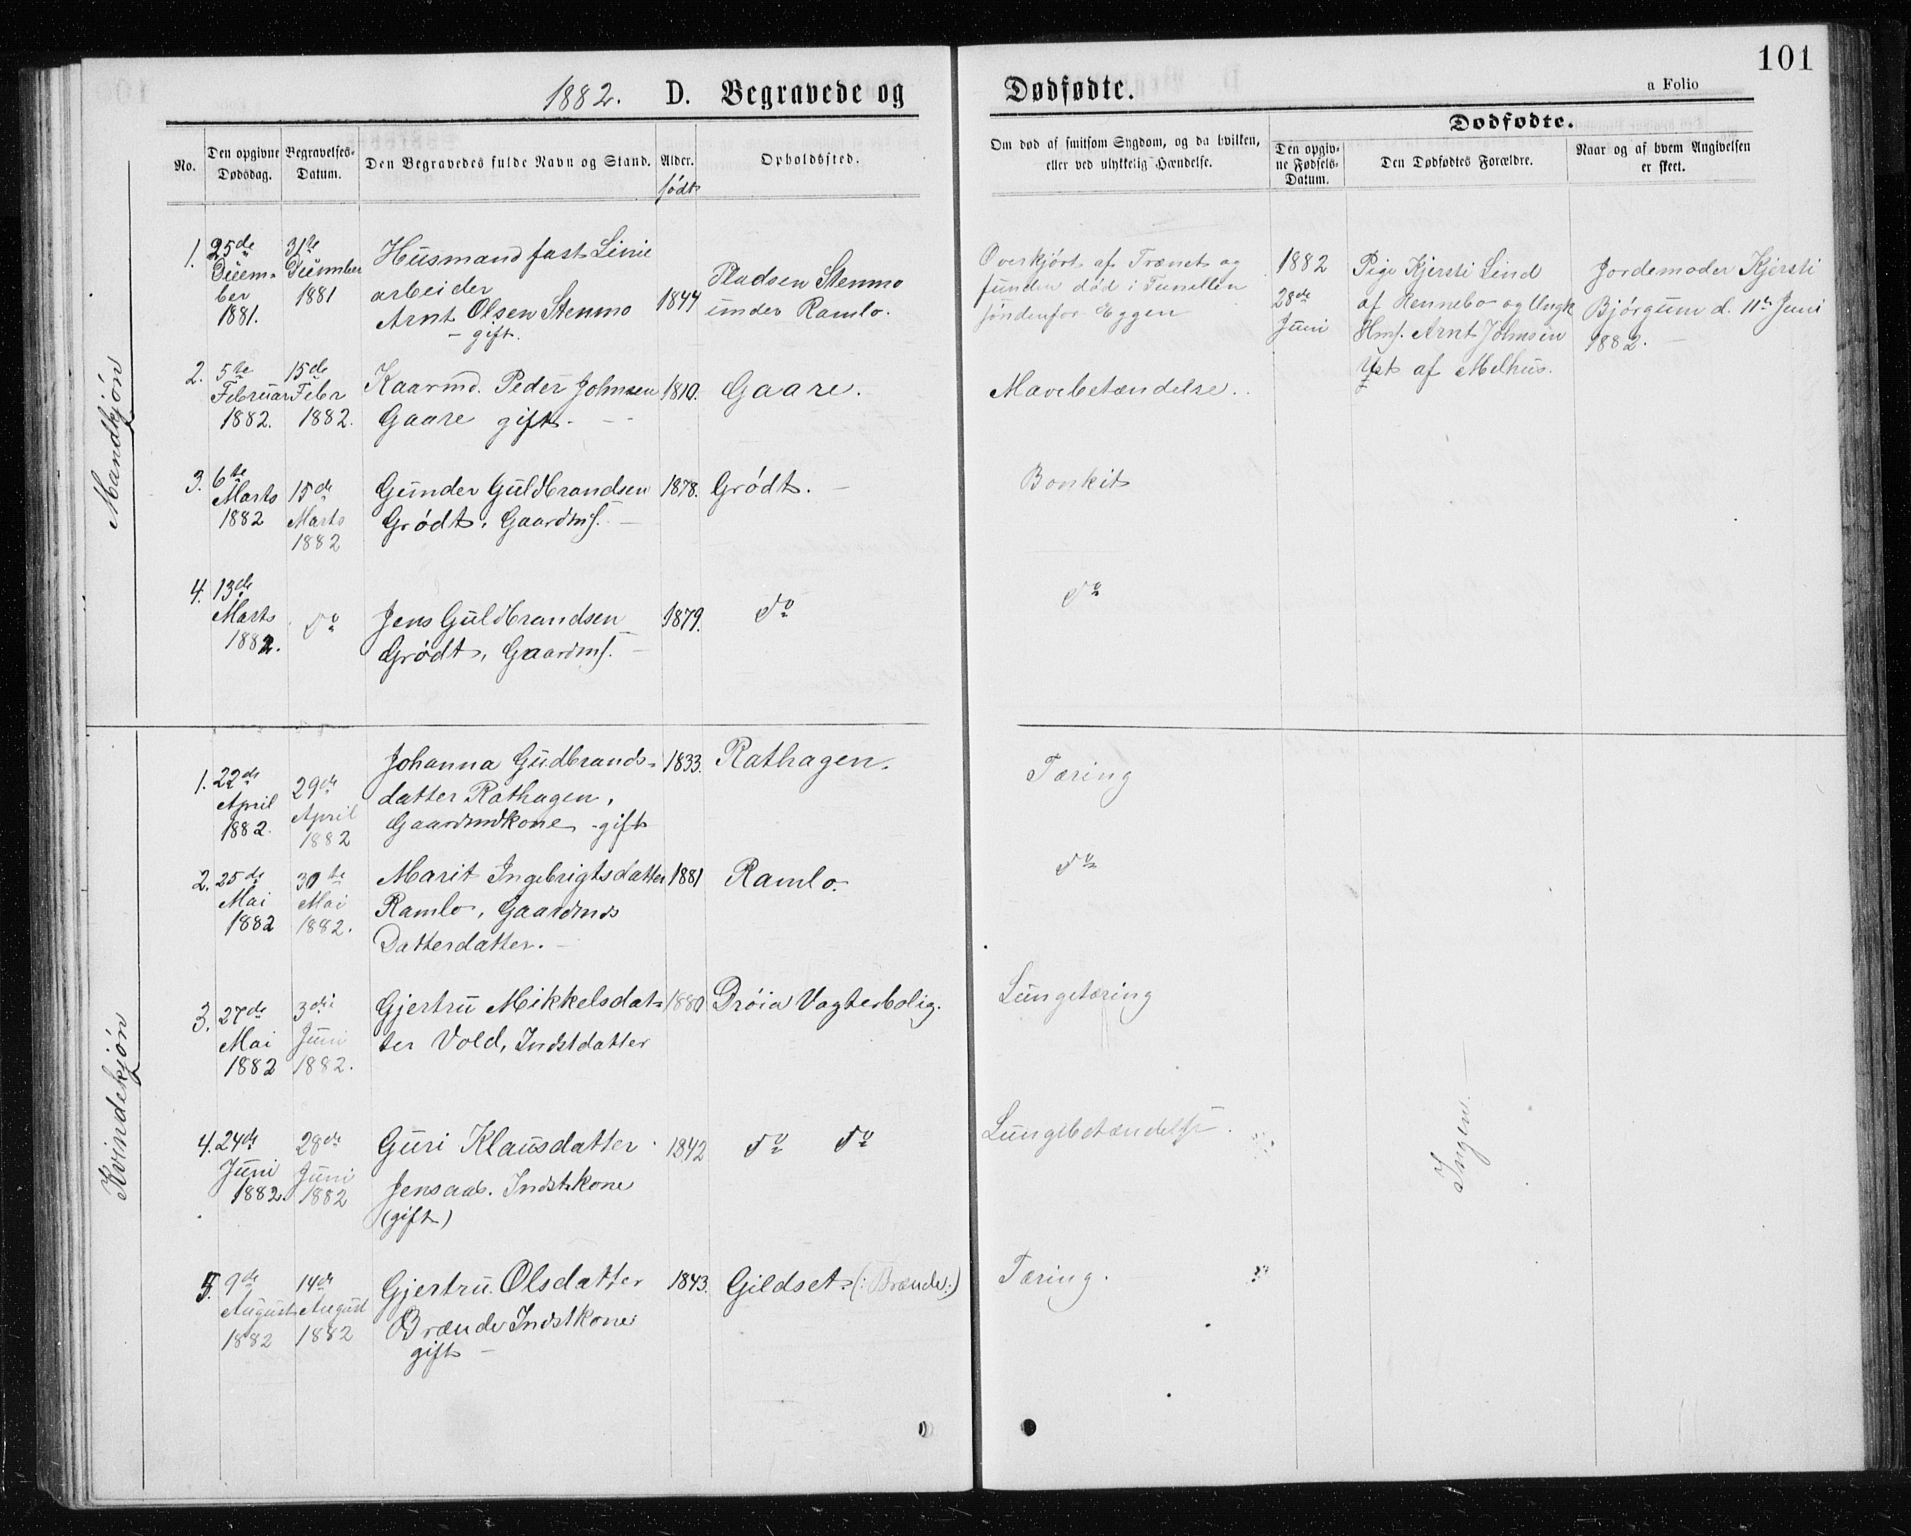 101
1882. D. Begravede og Dødfødte. a Folio
No.
Den opgivne Dødsdag.
Begravelses-Datum.
Den Begravedes fulde Navn og Stand.
Alder. født
Opholdssted.
Om død af smitsom Sygdom, og da hvilken, eller ved ulykkelig Hændelse.
Dødfødte.
Den opgivne Fødsels-Datum.
Den Dødfødtes Forældre.
Naar og af hvem Angivelsen er skeet.
Mandkjøn
1. 25de December 1881. 31te December 1881
Husmand fast Linie
arbeider
Arnt Olsen Stenmo
- gift.
1844
Pladsen Stenmo
under Ramlo.
Overkjørt af Trænet og
funden død i Tunellen
søndenfor Eggen
1882
28de
Juni
Pige Kjersti Lind
af Rennebo og Ungk
Hms. Arnt Johnsen
Øst af Melhus.
Jordemoder Kjersti
Bjørgum d. 11te Juni
1882. -
2. 5te Februar 1882. 15de Febr 1882.
Kaarmd. Peder Johnsen
Gaare gift. -
1810.
Gaare.
Mavebetændelse.
3. 6te Marts 1882 15de Marts 1882
Gunder Guldbrandsen
Grødt, Gaardms. -
1878.
Grødt. -
Bronkit
4. 13de Marts 1882. do
Jens Guldbrandsen
Grødt, Gaardms. -
1879.
do
do
Kvindekjøn
1. 22de April 1882. 29de April 1882
Johanna Gudbrands-
datter Rathagen,
Gaardmdkone - gift
1833.
Rathagen.
Tæring
2. 25de Mai 1882 30te Mai 1882.
Marit Ingebrigtsdatter
Ramlo, Gaardmds
Datterdatter. -
1881
Ramlo.
do
3. 27de Mai 1882 3die Juni 1882.
Gjertru Mikkelsdat-
ter Vold, Indstdatter
1880
Drøia Vogterbolig.
Lungetæring
4. 24de Juni 1882. 28de Juni 1882
Guri Klausdatter
Jensaas. Indstkone
(gift)
1842
do do
Lungebetændelse.
Ingen.
5. 9de August 1882 14de August 1882
Gjertru Olsdatter
Brænde Indstkone
gift -
1843.
Gildset. (: Brænde :)
Tæring.